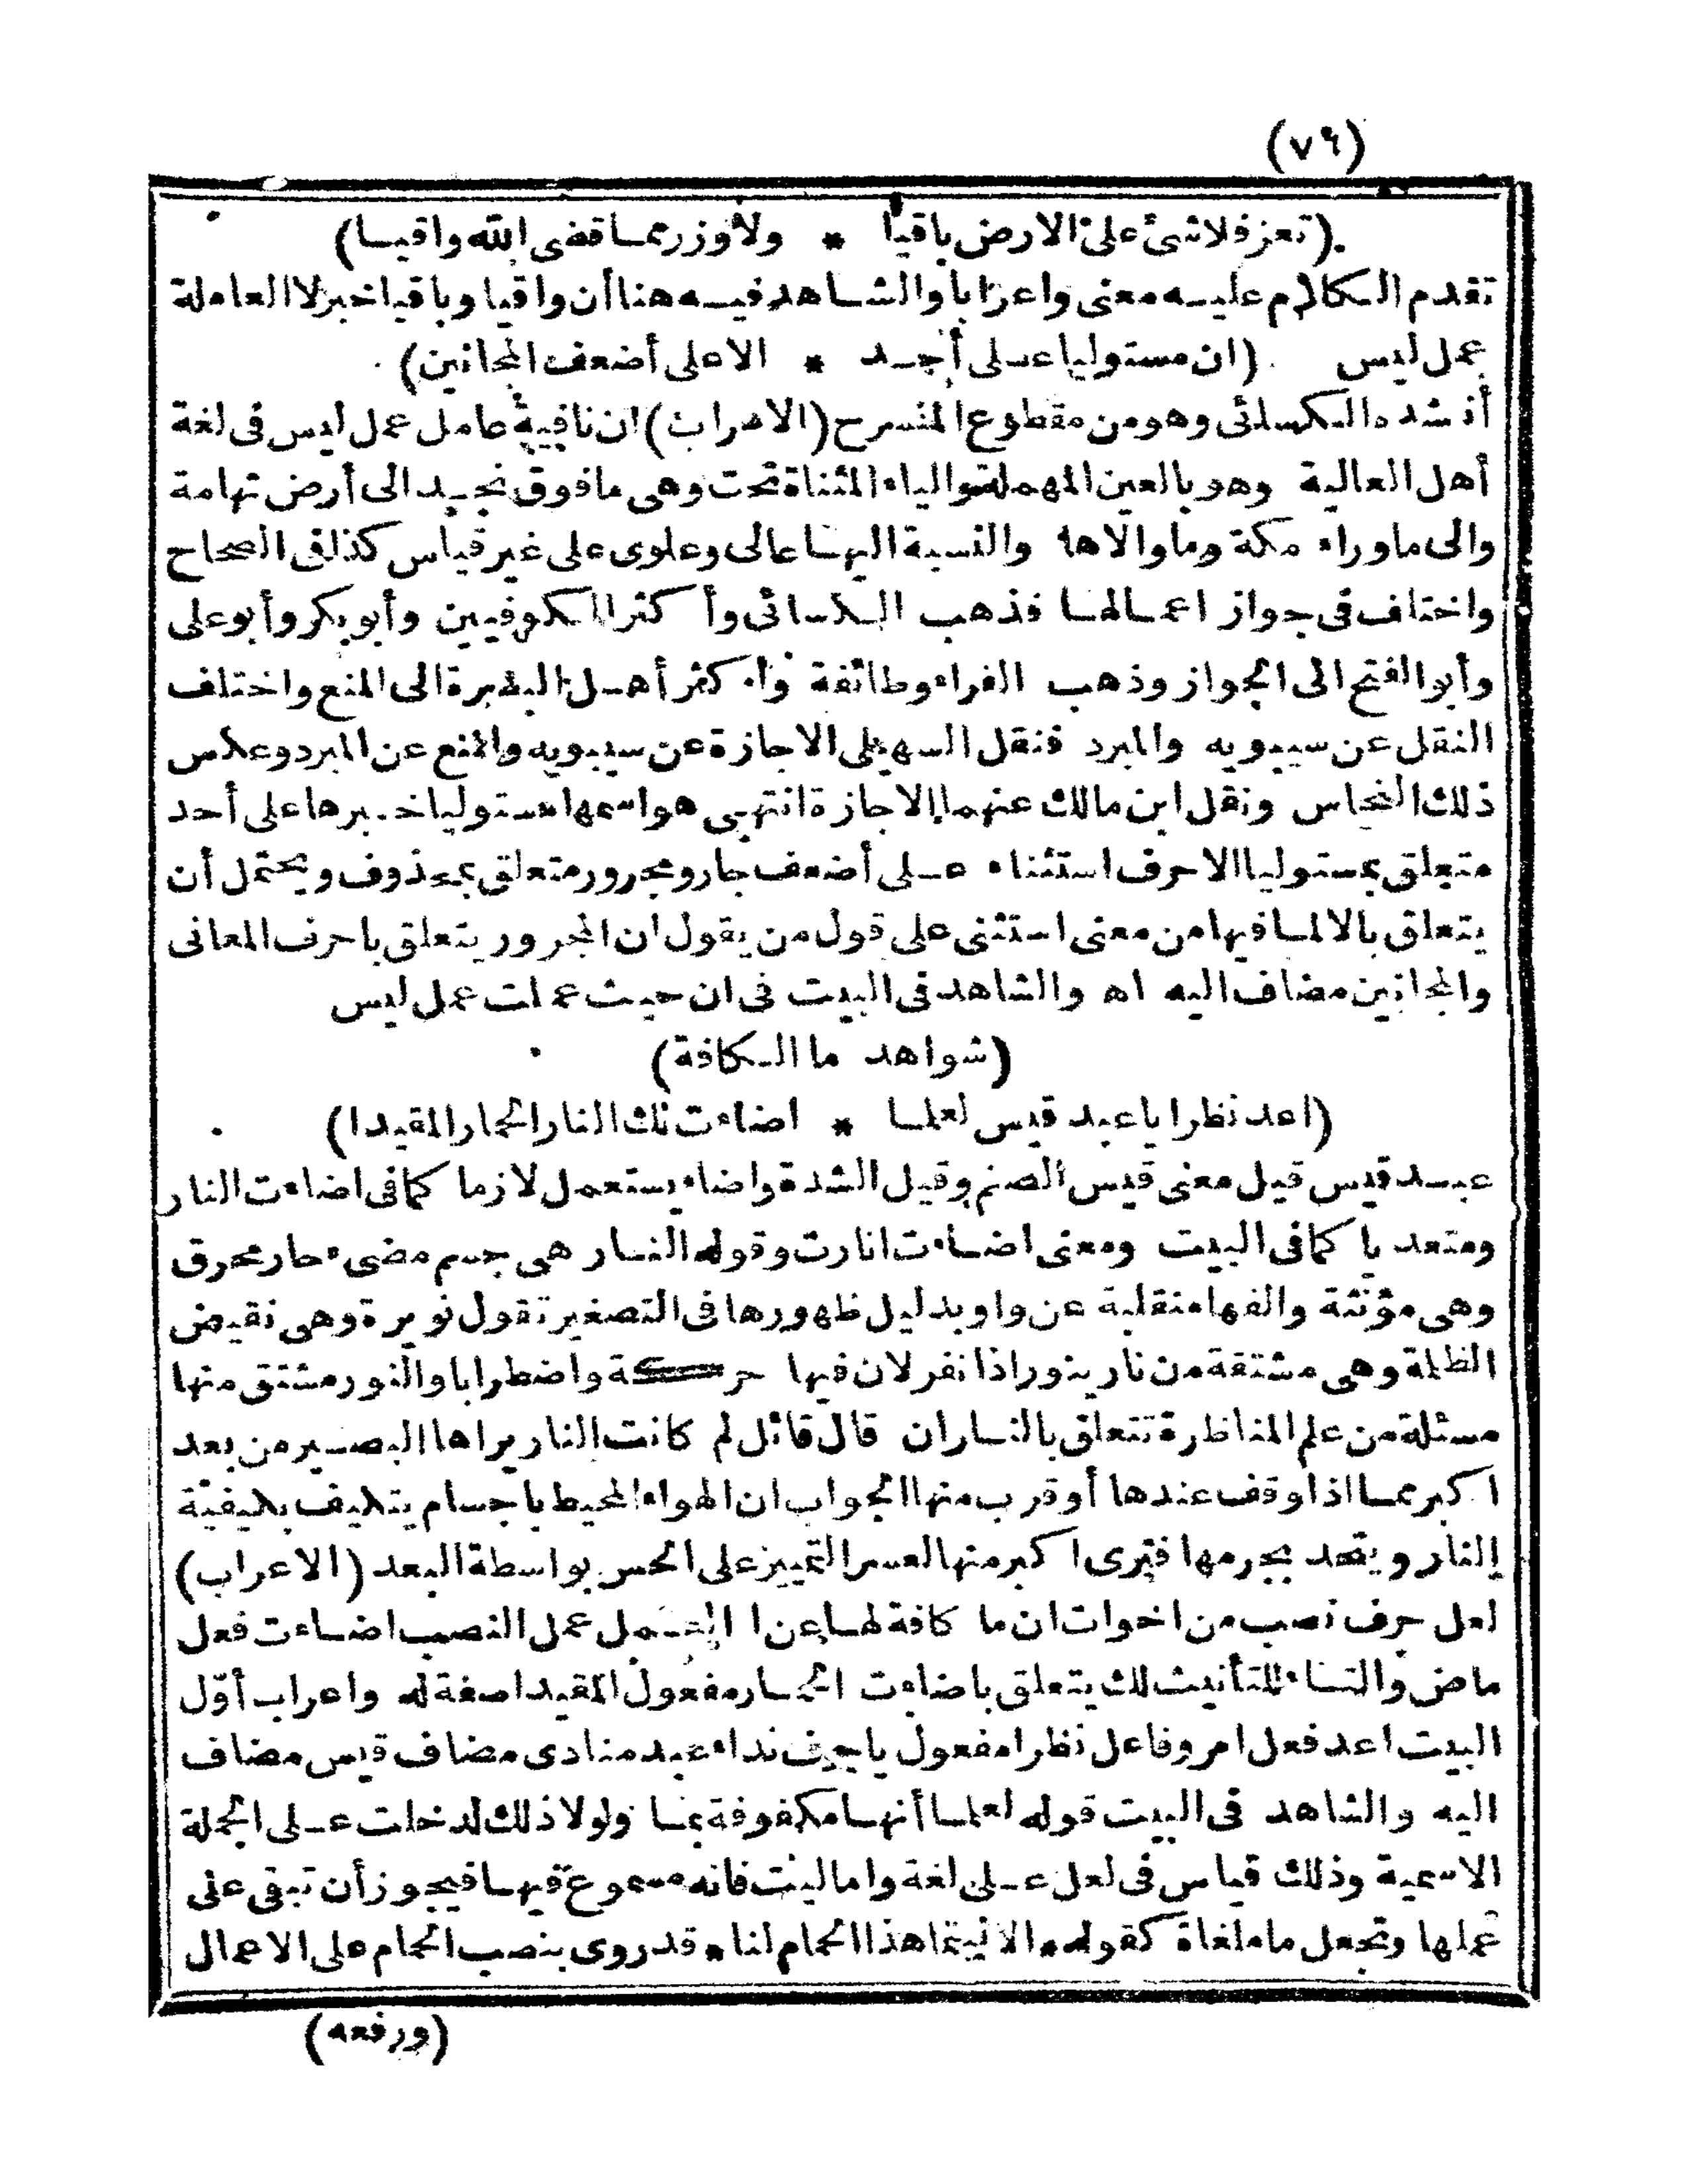 (٧٦)
(تعز فلا شئ على الارض باقيا * ولا وزر مما قضى الله واقيا)
تقدم الكلام عليه معنى واعرابا والشاهد فيه هنا أن واقيا وباقيا خبر لا العاملة
عمل ليس (ان مستوليا على أحد * الا على أضعف المجانين)
أنشده الكسائى وهو من مقطوع المنسرح (الاعراب) ان نافية عامل عمل ليس فى لغة
أهل العالية وهو بالعين المهملة والياء المثناة تحت وهى ما فوق نجد الى أرض تهامة
والى ما وراء مكة وما والاها والنسبة اليها عالى وعلوى على غير قياس كذا فى الصحاح
واختلف فى جواز اعمالها فذهب الكسائى وأكثر الكوفيين وأبو بكر وأبو على
وأبو الفتح الى الجواز وذهب الفراء وطائفة وأكثر أهل البصرة الى المنع واختلف
النقل عن سيبويه والمبرد فنقل السهيلى الاجازة عن سيبويه والمنع عن المبرد وعكس
ذلك النحاس ونقل ابن مالك عنهما الاجازة انتهى هو اسمها مستوليا خبرها على أحد
متعلق بمستوليا الا حرف استثناء على أضعف جار ومجرور متعلق بمحذوف ويحتمل أن
يتعلق بالا لما فيها من معنى استثنى على قول من يقول ان المجرور يتعلق باحرف المعانى
والمجانين مضاف اليه اه والشاهد فى البيت فى ان حيث عملت عمل ليس
(شواهد ما الكافة)
(اعد نظرا يا عبد قيس لعلما * اضاءت لك النار الحمار المقيدا)
عبد قيس قيل معنى قيس الصنم وقيل الشدة واضاء يستعمل لازما كما فى اضاءت النار
ومتعديا كما فى البيت ومعنى اضاءت انارت وقوله النار هى جسم مضىء حار محرق
وهى مؤنثة والفها منقلبة عن واو بدليل ظهورها فى التصغير تقول نويرة وهى نقيض
الظلمة وهى مشتقة من نار ينور اذا نفر لان فيها حركة واضطرابا والنور مشتق منها
مسئلة من علم المناظرة تتعلق بالنار ان قال قائل لم كانت النار يراها البصير من بعد
اكبر مما اذا وقف عندها أو قرب منها الجواب ان الهواء المحيط باجسام يتكيف بكيفية
النار ويتحد بجرمها فترى اكبر منها لعسر التمييز على الحس بواسطة البعد (الاعراب)
لعل حرف نصب من اخوات ان ما كافة لها عن العمل عمل النصب اضاءت فعل
ماض والتاء للتأنيث لك يتعلق باضاءت الحمار مفعول المقيدا صفة له واعراب أوّل
البيت اعد فعل امر وفاعل نظرا مفعول يا حرف نداء عبد منادى مضاف قيس مضاف
اليه والشاهد فى البيت قوله لعلما أنها مكفوفة بما ولولا ذلك لدخلت على الجملة
الاسمية وذلك قياس فى لعل على لغة واما ليت فانه مسموع فيها فيجوز أن تبقى على
عملها وتجعل ما ملغاة كقوله * الا ليتما هذا الحمام لنا * قد روى بنصب الحمام على الاعمال
(ورفعه)